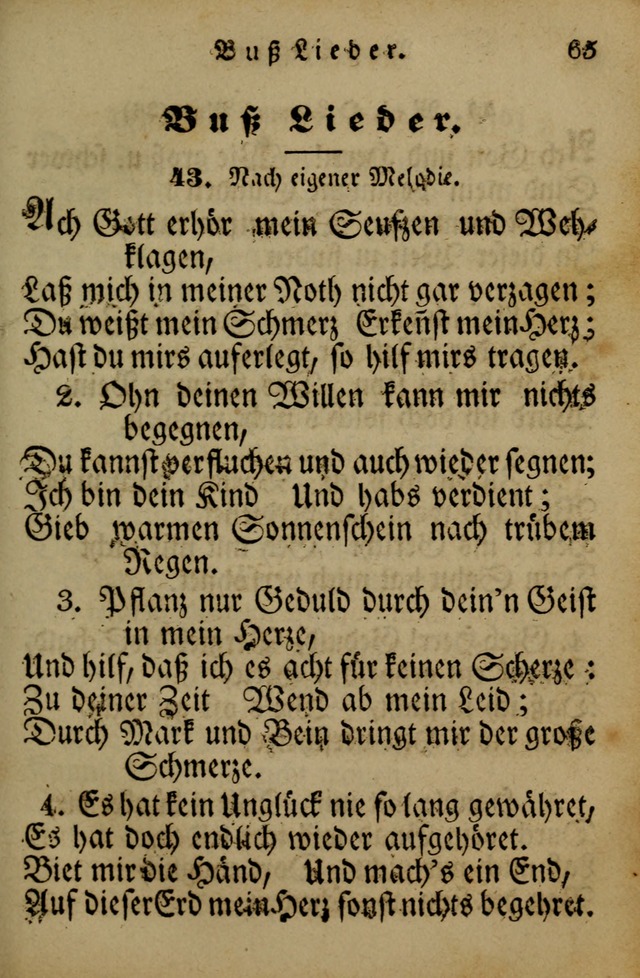 Buß Lieder. 65
Buß Lieder.
43. Nach eigener Melodie.
Ach Gott erhör mein Seufzen und Weh-
klagen,
Laß mich in meiner Noth nicht gar verzagen;
Du weißt mein Schmerz Erkeñst mein Herz;
Hast du mirs auferlegt, so hilf mirs tragen.
2. Ohn deinen Willen kann mir nichts
begegnen,
Du kannst verfluchen und auch wieder segnen;
Ich bin dein Kind Und habs verdient;
Gieb warmen Sonnenschein nach trübem
Regen.
3. Pflanz nur Geduld durch dein'n Geist
in mein Herze,
Und hilf, daß ich es acht für keinen Scherze;
Zu deiner Zeit Wend ab mein Leid;
Durch Mark und Bein dringt mir der große
Schmerze.
4. Es hat kein Unglück nie so lang gewähret,
Es hat doch endlich wieder aufgehöret.
Biet mir die Händ, Und mach's ein End,
Auf dieser Erd mein Herz sonst nichts begehret.